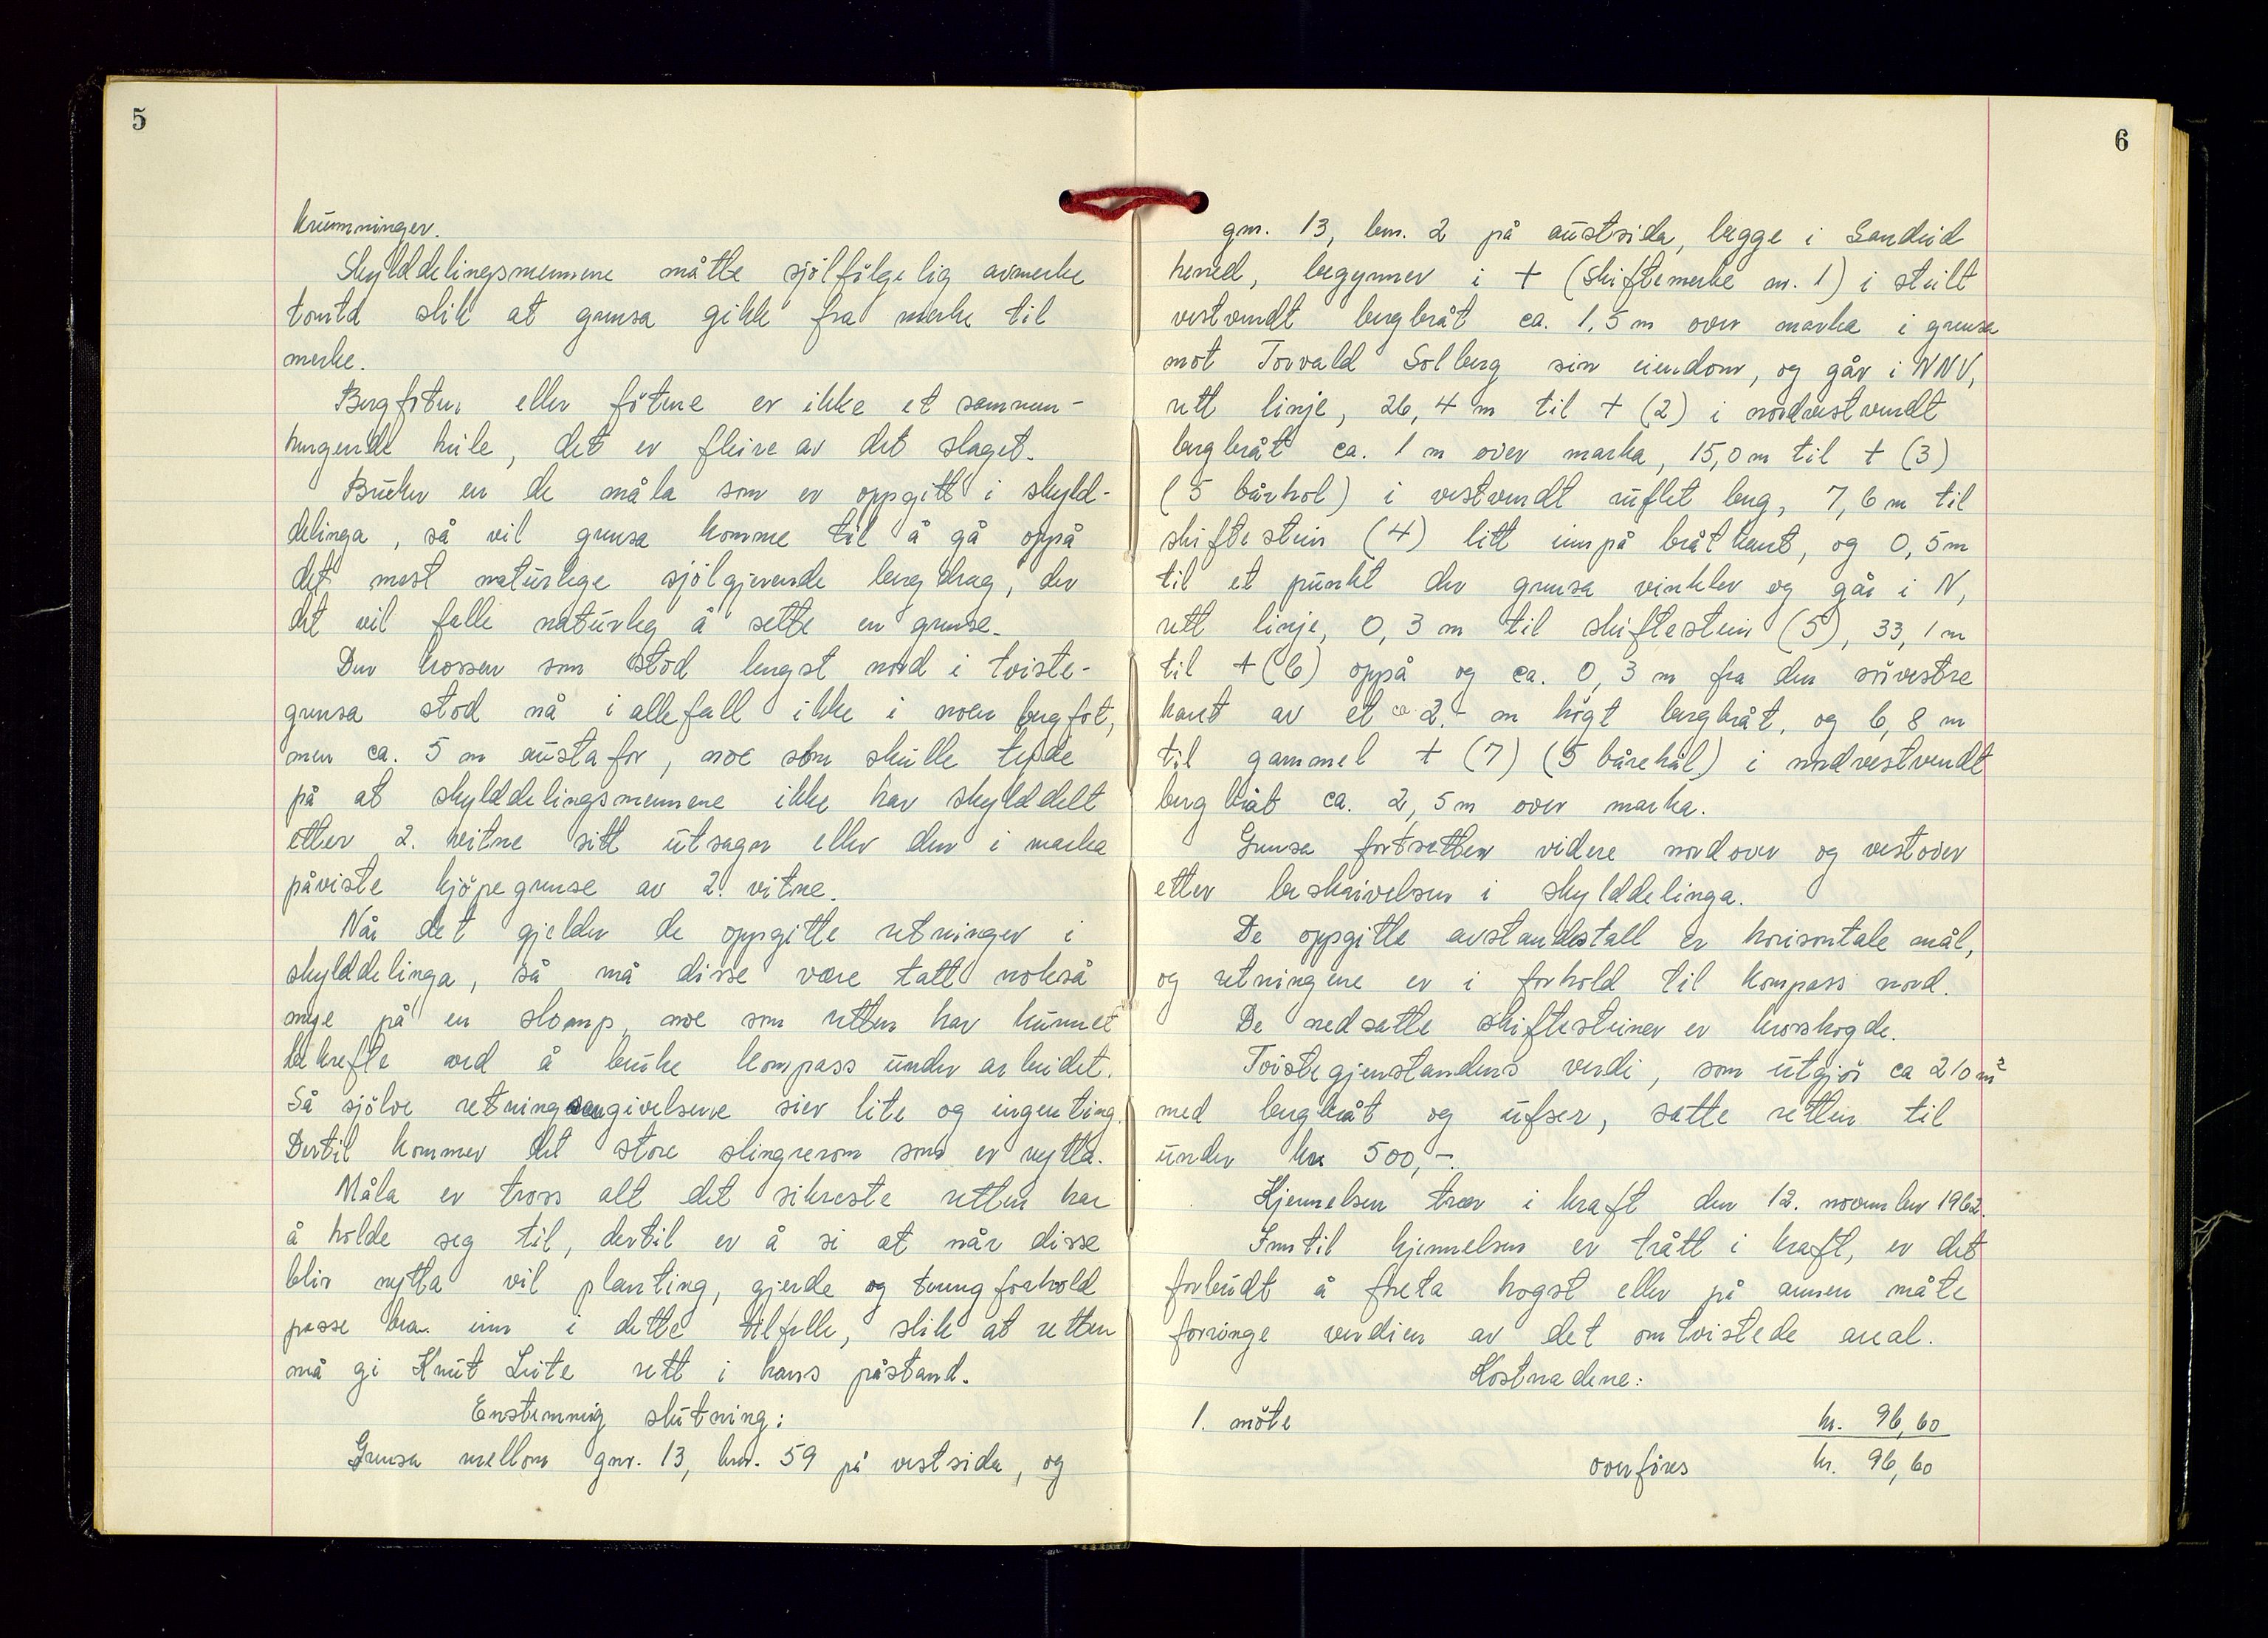 5
krumninger.
Skylddelingsmennene måtte sjölfölgelig avmerke
tomta slik at grensa gikk fra merke til
merke.
Bergfoten eller fötene er ikke et sammen-
hengende hele, det er fleire av det slaget.
Bruker en de måla som er oppgitt i skyld-
delinga, så vil grensa komme til å gå oppå
det mest naturlige sjölgjevende bergdrag, der
det vil falle naturleg å sette en grense.
Den krossen som stod lengst nord i tviste-
grensa stod nå i allefall ikke i noen bergfot,
men ca. 5 m austafor, noe som skulle tyde
på at skylddelingsmennene ikke har skylddelt
etter 2. vitne sitt utsagn eller den i marka
påviste kjöpegrense av 2. vitne.
Når det gjelder de oppgitte retninger i
skylddelinga, så må disse være tatt nokså
mye på en slomp, noe som retten har kunnet
bekrefte ved å bruke kompass under arbeidet.
Så sjölve retningsangivelsene sier lite og ingenting.
Dertil kommer det store slingrerom som er nytta.
Måla er tross alt det sikreste retten har
å holde seg til, dertil er å si at når disse
blir nytta vil planting, gjerde og terrengforhold
passe bra inn i dette tilfelle, slik at retten
må gi Knut Leite rett i hans påstand.
Enstemmig slutning:
Grensa mellom gnr. 13, bnr. 59 på vestsida, og
6
gnr. 13, bnr. 2 på austsida, begge i Sandeid
herred, begynner i + (skiftemerke nr. 1) i steilt
vestvendt bergbråt ca. 1,5 m over marka i grensa
mot Torvald Solberg sin eiendom, og går i NNV,
rett linje, 26,4 m til + (2) i nordvestvendt
bergbråt ca. 1 m over marka, 15,0 m til + (3)
(5 bårhol) i vestvendt uflet berg, 7,6 m til
skiftestein (4) litt innpå bråtkant, og 0,5 m
til et punkt der grensa vinkler og går i N,
rett linje, 0,3 m til skiftestein (5), 33,1 m
til + (6) oppå og ca. 0,3 m fra den sörvestre
kant av et ca. 2.- m högt bergbråt, og 6,8 m
til gammel + (7) (5 bårehål) i nordvestvendt
bergbråt ca. 2,5 m over marka.
Grensa fortsetter videre nordover og vestover
etter beskrivelsen i skylddelinga.
De oppgitte avstandstall er horisontale mål,
og retningene er i forhold til kompass nord.
De nedsatte skiftesteiner er krosshogde.
Tvistegjenstandens verdi, som utgjör ca 210 m²
med bergbråt og ufser, satte retten til
under kr 500,-.
Kjennelsen trer i kraft den 12. november 1962.
Inntil kjennelsen er trått i kraft, er det
forbudt å foreta hogst eller på annen måte
forringe verdien av det omtvistede areal.
Kostnadene:
1. möte kr. 96,60
overföres kr. 96,60